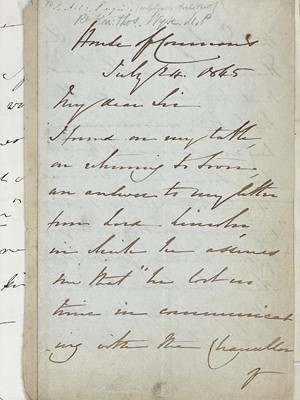 To A. W. Pugin, (celebrated Architect)
Rt. Hon. Thos. Wyse. M.P
House of Commons
July 24. 1845
My dear Sir
I found on my table,
on returning to town,
an answer to my letter
from Lord Lincoln
in which he assures
me that "he lost no
time in communicat
ing with the Chancellor
of